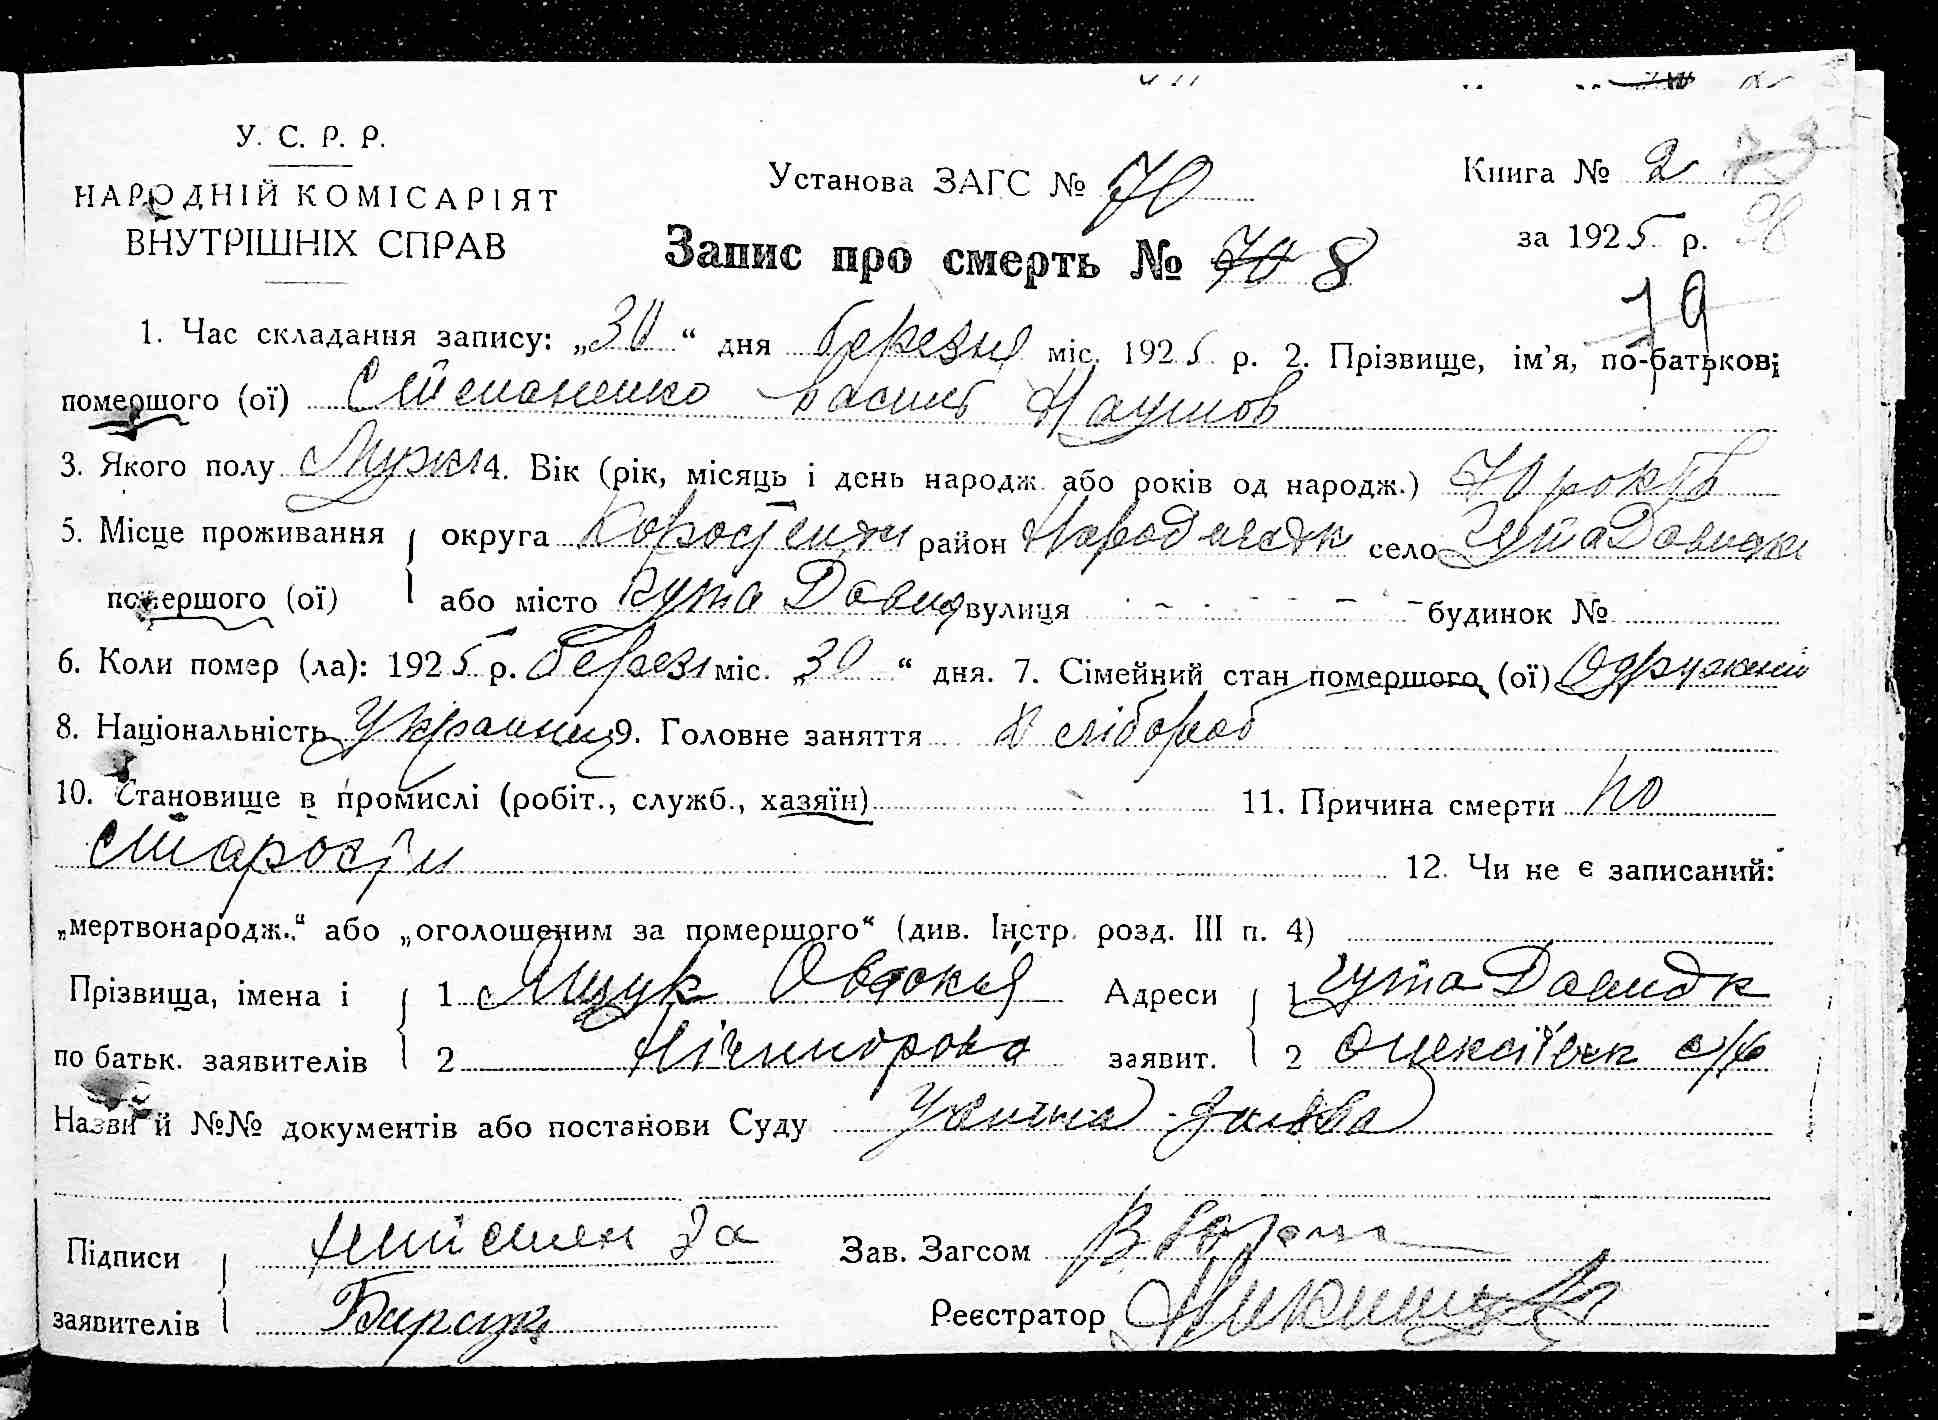 У. С. Р. Р.
НАРОДНІЙ КОМІСАРІЯТ
ВНУТРІШНІХ СПРАВ
Установа ЗАГС № 70
Книга № 2 73
за 1925 р. 98
Запис про смерть № 70 8
79
1. Час складання запису: „30“ дня березня міс. 1925 р. 2. Прізвище, ім’я, по-батькові
помершого (ої) Степаненко Василь Наумов
3. Якого полу Мужс 4. Вік (рік, місяць і день народж. або років од народж.) 70 років
5. Місце проживання округа Коростенськ район Народицьк село Гута Давидк
помершого (ої) або місто Гута Давид вулиця будинок №
6. Коли помер (ла): 1925 р. березн міс. „30“ дня. 7. Сімейний стан помершого (ої) Одружений
8. Національність Українець 9. Головне заняття Хлібороб
10. Становище в промислі (робіт., служб., хазяїн) 11. Причина смерти по
старости
12. Чи не є записаний:
„мертвонародж.“ або „оголошеним за помершого“ (див. Інстр. розд. III п. 4)
Прізвища, імена і 1 Ящук Овдокія Адреси 1 Гута Давидк
по батьк. заявителів 2 Нічипорова заявит. 2 Олексіївськ с/р
Назви й №№ документів або постанови Суду Устна заява
Підписи за Зав. Загсом
заявителів Реєстратор